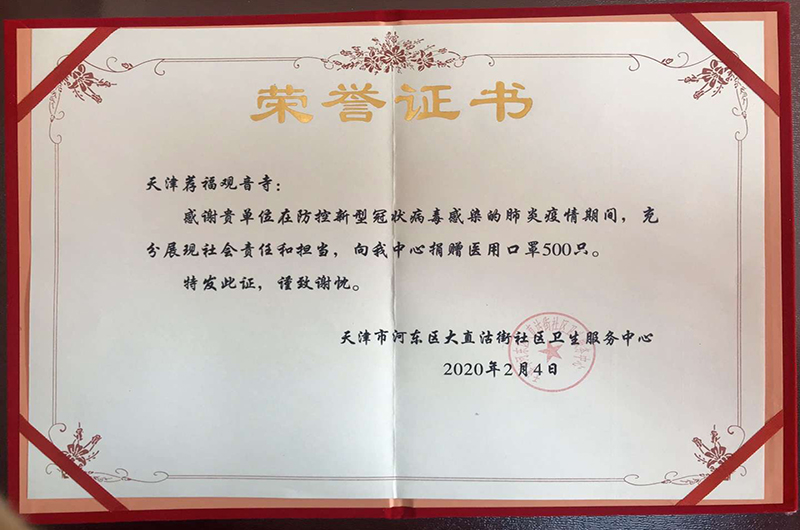 荣誉证书
天津荐福观音寺：
感谢贵单位在防控新型冠状病毒感染的肺炎疫情期间，充
分展现社会责任和担当，向我中心捐赠医用口罩500只。
特发此证，谨致谢忱。
天津市河东区大直沽街社区卫生服务中心
2020年2月4日